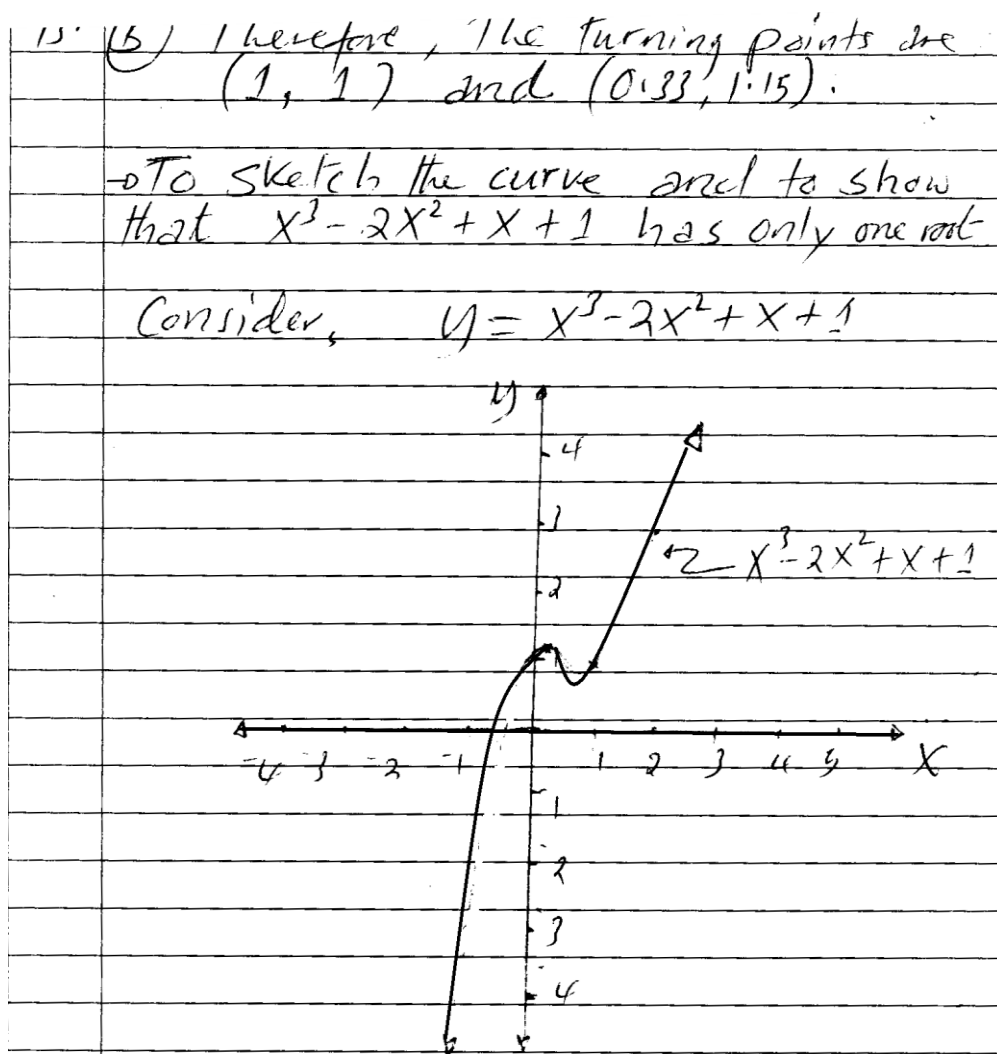 15. (b) Therefore, The turning points are
(1, 1) and (0.33, 1.15).
→To sketch the curve and to show
that x³ - 2x² + x + 1 has only one root
Consider, y = x³ - 2x² + x + 1
y
4
3
x³ - 2x² + x + 1
2
-4 -3 -2 -1 1 2 3 4 5 x
1
2
3
4